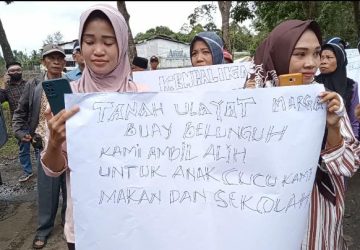 TANAH ULAYAT MARGA
BUAY BELUNGUH
KAMI AMBIL ALIH
UNTUK ANAK CUCU KAMI
MAKAN DAN SEKOLAH